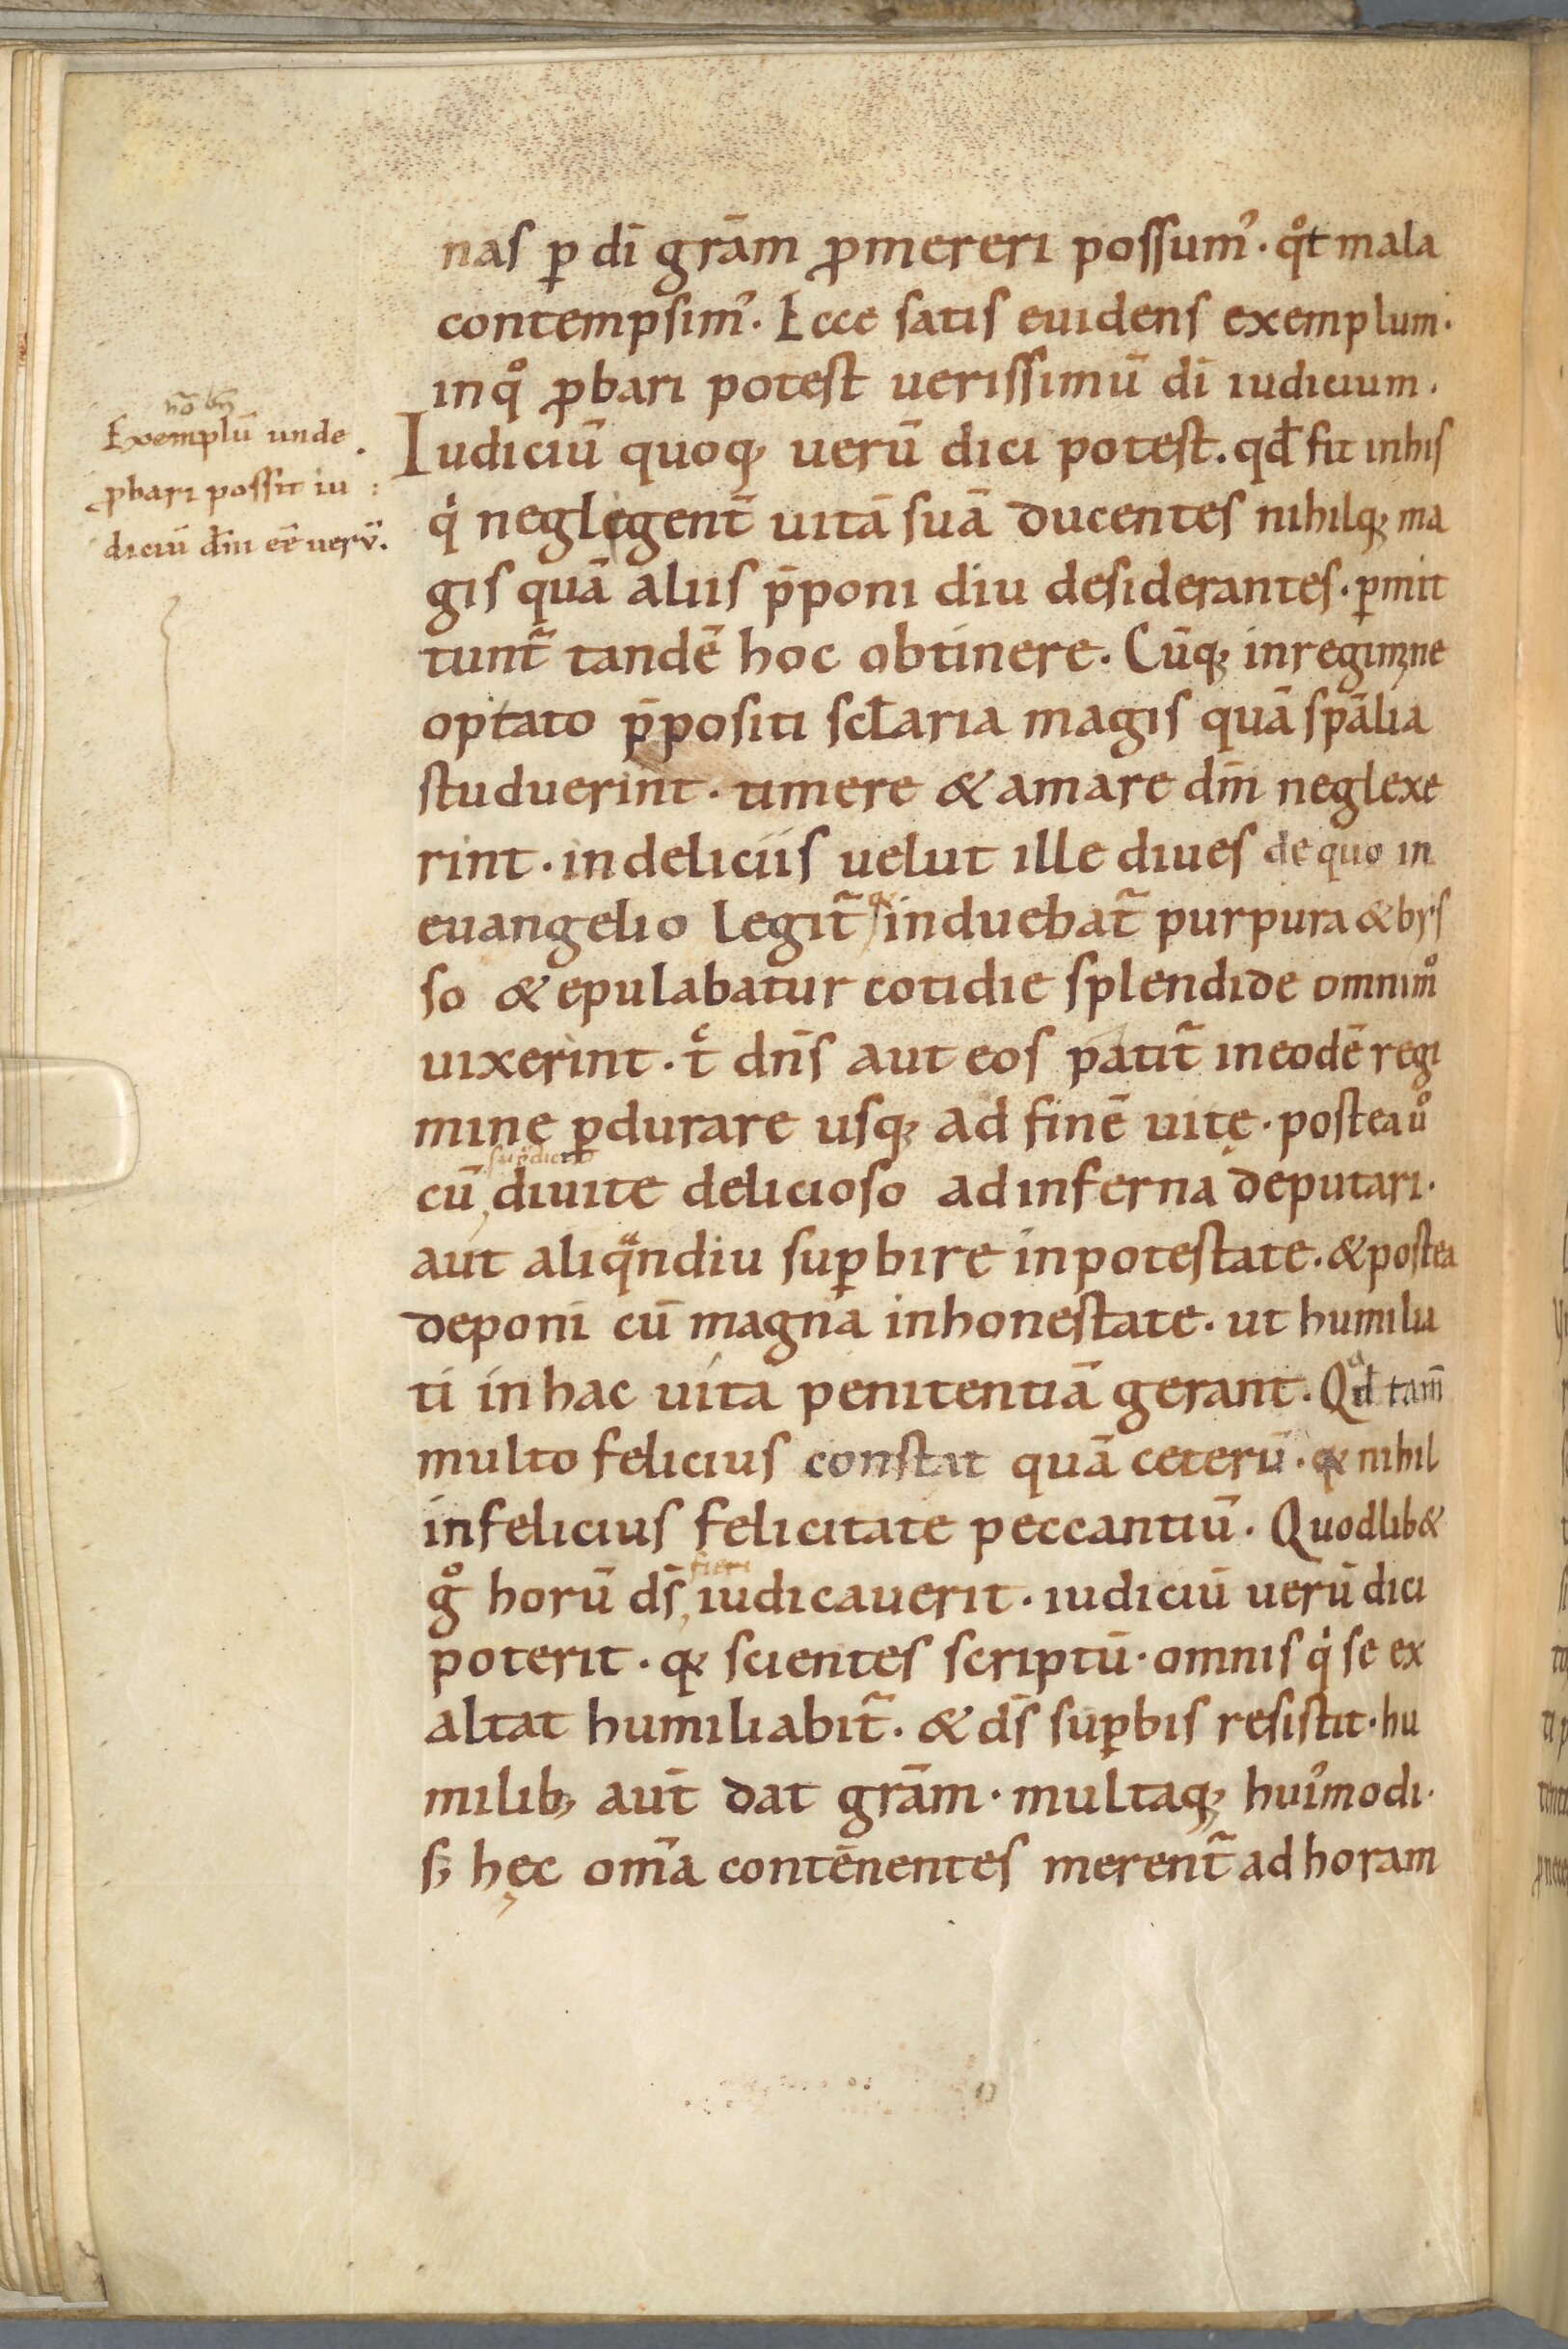 nō bn̄
Exemplū unde
ꝓbari possit iu
diciū dm̄i eē̄ uerū.
nas ꝑ dī grām ꝓmereri possum᾽. qͦt mala
contempsim᾽. Ecce satis euidens exemplum.
inqͦ ꝓbari potest uerissimū dī iudicium.
Iudiciū quoq; uerū dici potest. qđ fit inhis
qⁱ neglegent̄ uitā suā ducentes nihilq; ma
gis quā aliis p̄poni diu desiderantes. ꝑmit
tunt̃ tandē hoc obtinere. Cūq; inregimine
optato p̄positi scłaria magis quā spālia
studuerint. timere & amare dm̄ neglexe
rint. indeliciis uelut ille diues de quo in
euangelio legit̃ q; induebat̃ purpura & bys
so & epulabatur cotidie splendide omnimͦ
uixerint. tͨ dn̄s aut eos patit̃ ineodē regi
mine ꝑdurare usq; ad finē uitę. postea uͦ
sup̄dicto
cū, diuite delicioso ad inferna deputari.
aut aliqᵃndiu suꝑbire inpotestate. & postea
deponi cū magna inhonestate. ut humilia
ti in hac uita penitentiā gerant. Qđ tam̄
multo felicius constat quā ceterū. qͥa nihil
infelicius felicitate peccantiū. Quodlib&
fieri
gͦ horū ds̄, iudicauerit. iudiciū uerū dici
poterit. qͥa scientes scriptū. omnis qⁱ se ex
altat humiliabit̃. & ds̄ suꝑbis resistit. hu
milib; aut̄ dat grām. multaq; hui᾽modi.
s; hęc om̄a contēnentes merent̃ ad horam